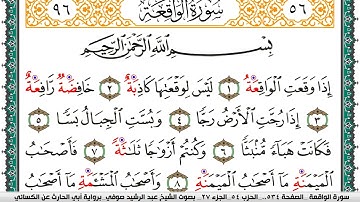 ٩٦ سُورَةُ الْوَاقِعَةِ ٥٦
بِسْمِ اللَّهِ الرَّحْمَٰنِ الرَّحِيمِ
إِذَا وَقَعَتِ الْوَاقِعَةُ ١ لَيْسَ لِوَقْعَتِهَا كَاذِبَةٌ ٢ خَافِضَةٌ رَافِعَةٌ
٣ إِذَا رُجَّتِ الْأَرْضُ رَجًّا ٤ وَبُسَّتِ الْجِبَالُ بَسًّا ٥
فَكَانَتْ هَبَاءً مُنْبَثًّا ٦ وَكُنْتُمْ أَزْوَاجًا ثَلَاثَةً ٧ فَأَصْحَابُ
الْمَيْمَنَةِ مَا أَصْحَابُ الْمَيْمَنَةِ ٨ وَأَصْحَابُ الْمَشْئَمَةِ مَا أَصْحَابُ
سورة الواقعة الصفحة ٥٣٤ الحزب ٥٤ الجزء ٢٧ بصوت الشيخ عبد الرشيد صوفي برواية أبي الحارث عن الكسائي